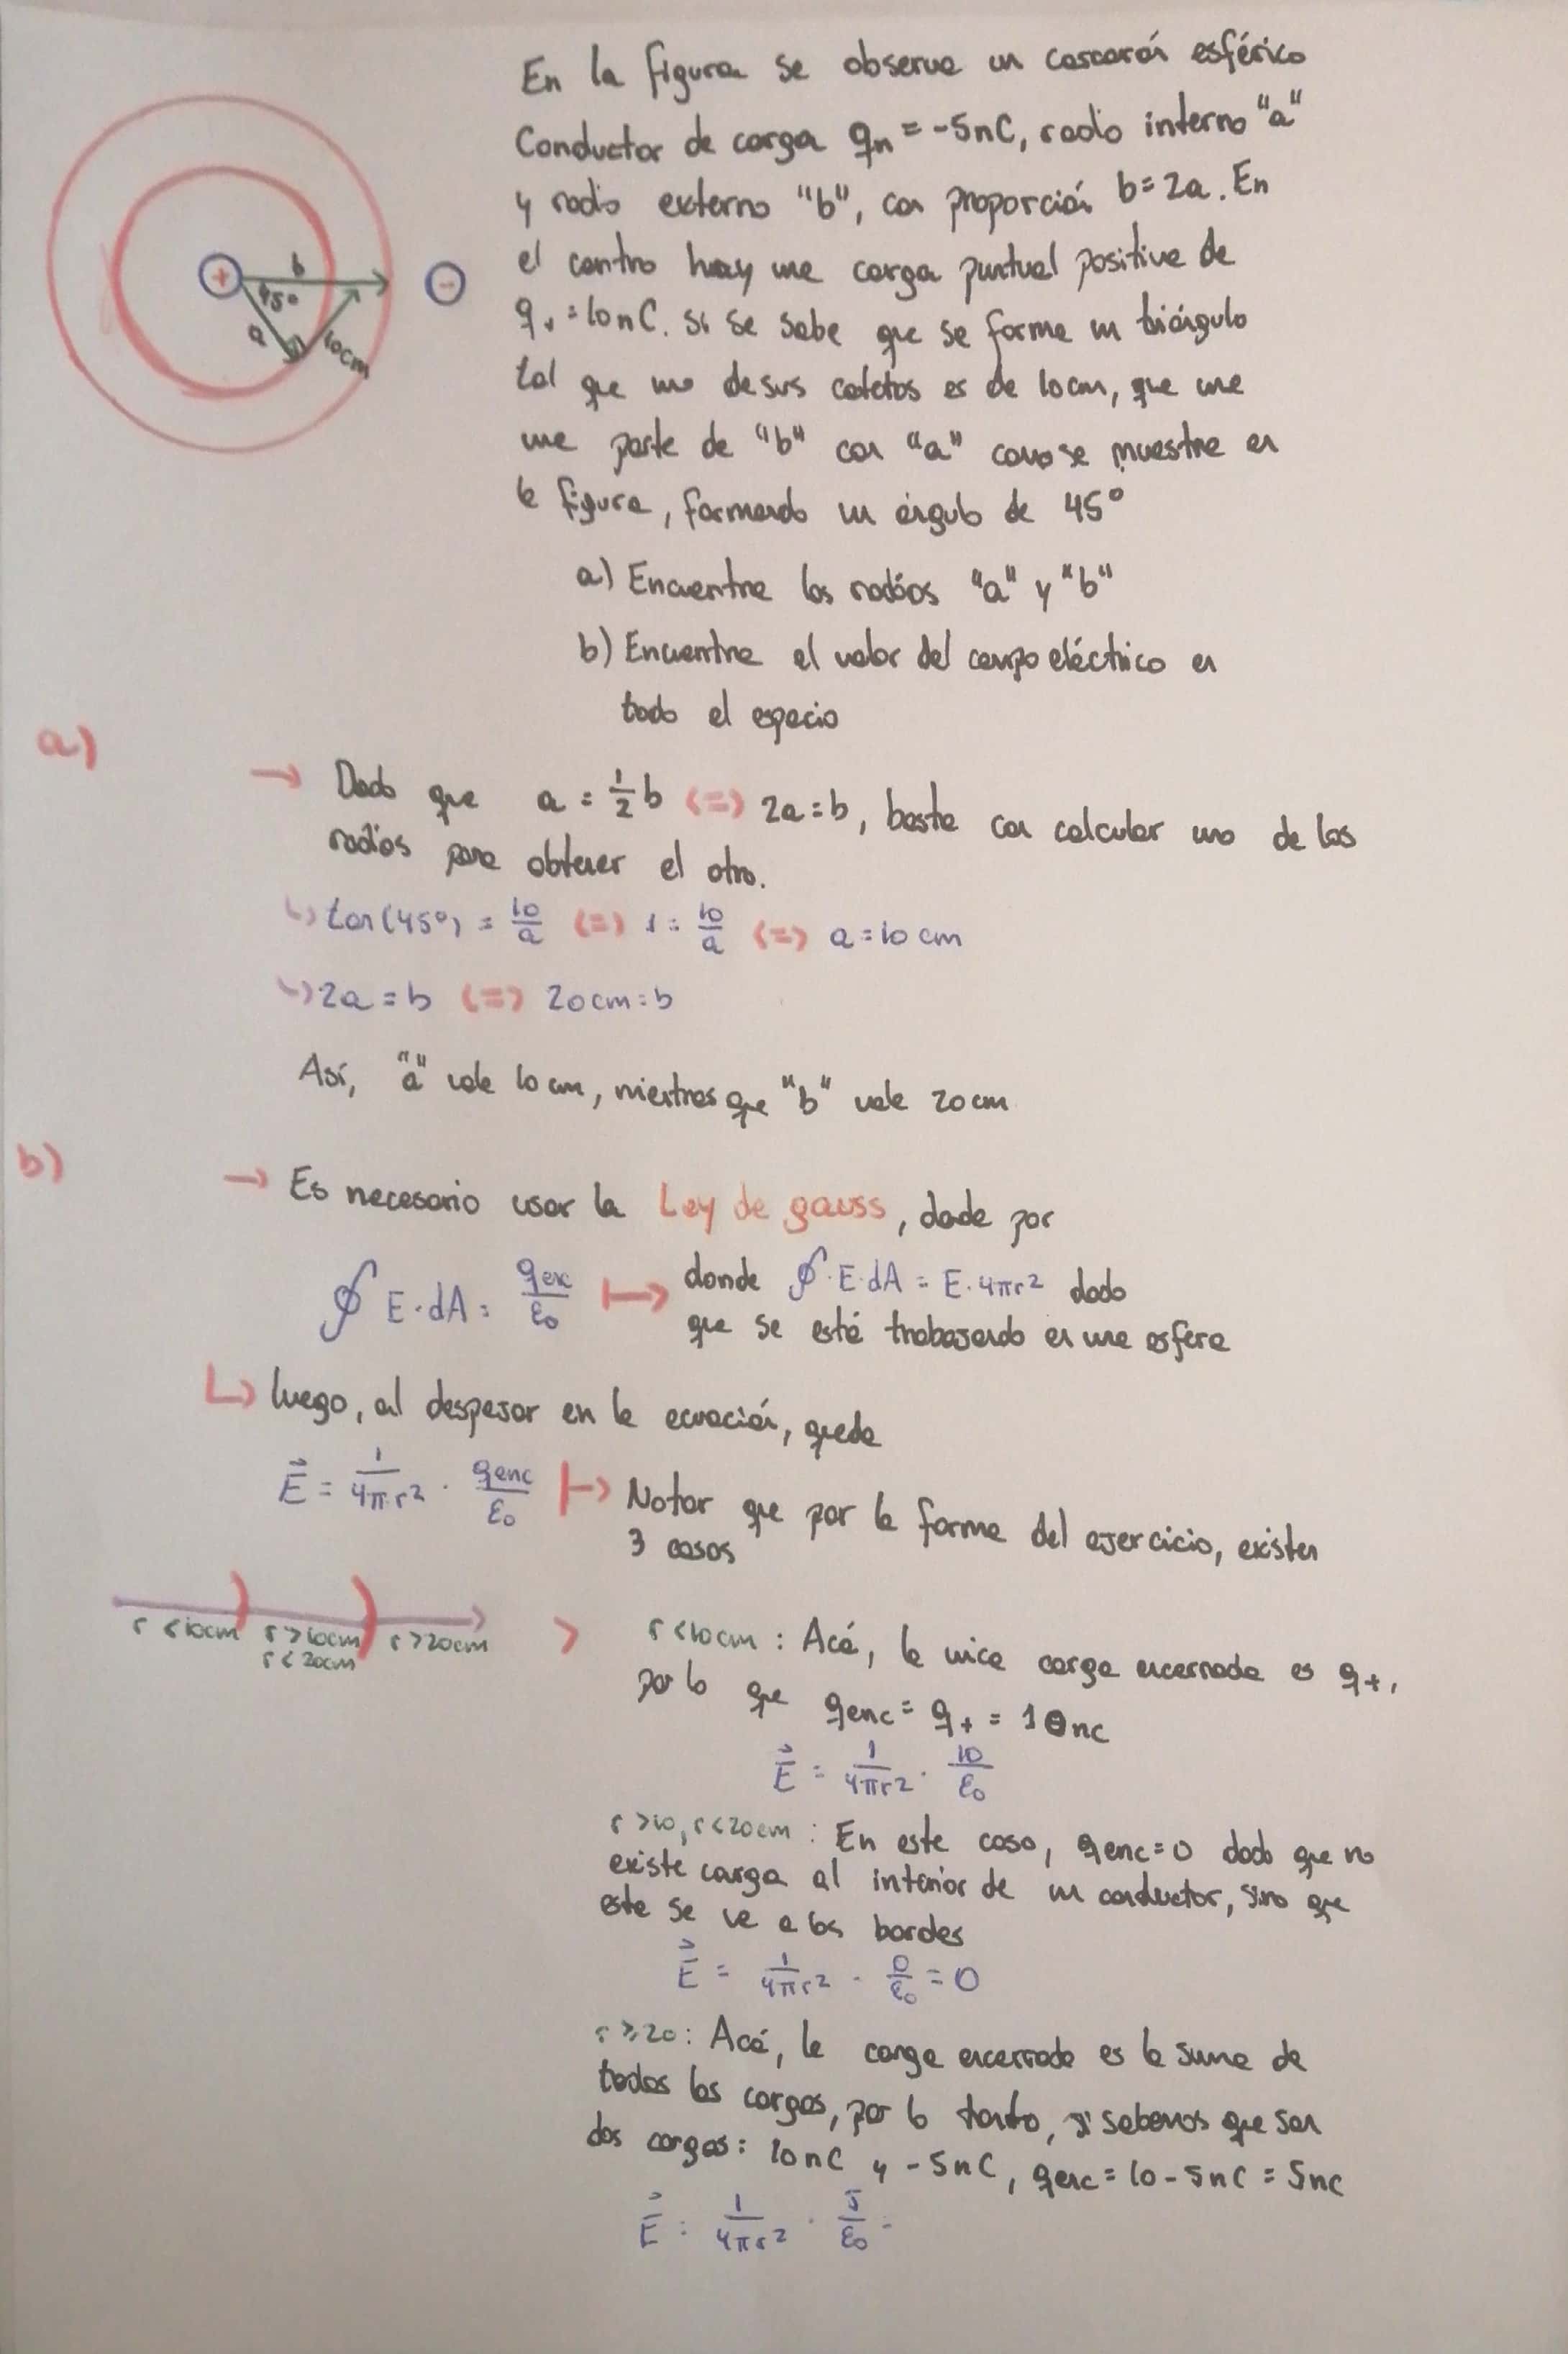 En la figura se observa un cascarón esférico
Conductor de carga qn = -5nC, radio interno "a"
y radio externo "b", con proporción b=2a. En
el centro hay una carga puntual positiva de
q+ = 10nC. Si se sabe que se forma un triángulo
tal que uno de sus catetos es de 10cm, que une
una parte de "b" con "a" como se muestra en
la figura, formando un ángulo de 45°
a) Encuentra los radios "a" y "b"
b) Encuentra el valor del campo eléctrico en
todo el espacio
+
b
45°
a
10cm
-
a)
→ Dado que a = 1/2 b <=> 2a=b, basta con calcular uno de los
radios para obtener el otro.
↳ tan(45°) = 10/a <=> 1 = 10/a <=> a=10 cm
↳ 2a = b <=> 20cm = b
Así, "a" vale 10 cm, mientras que "b" vale 20cm
b)
→ Es necesario usar la Ley de gauss, dada por
∮ E·dA = qenc/ε0 ↦ donde ∮·E·dA = E·4πr² dado
que se está trabajando en una esfera
↳ luego, al despejar en la ecuación, queda
E⃗ = 1/4πr² · qenc/ε0 ↦ Notar que por la forma del ejercicio, existen
3 casos
r<10cm r>10cm r>20cm
r<20cm
> r<10cm : Acá, la unica carga encerrada es q+,
por lo que qenc = q+ = 10nc
E⃗ = 1/4πr² · 10/ε0
r>10, r<20cm : En este caso, qenc=0 dado que no
existe carga al interior de un conductor, sino que
esta se ve a los bordes
E⃗ = 1/4πr² · 0/ε0 = 0
r≥20: Acá, la carga encerrada es la suma de
todas las cargas, por lo tanto, si sabemos que son
dos cargas: 10nC y -5nC, qenc = 10-5nC = 5nc
E⃗ = 1/4πr² · 5/ε0 =